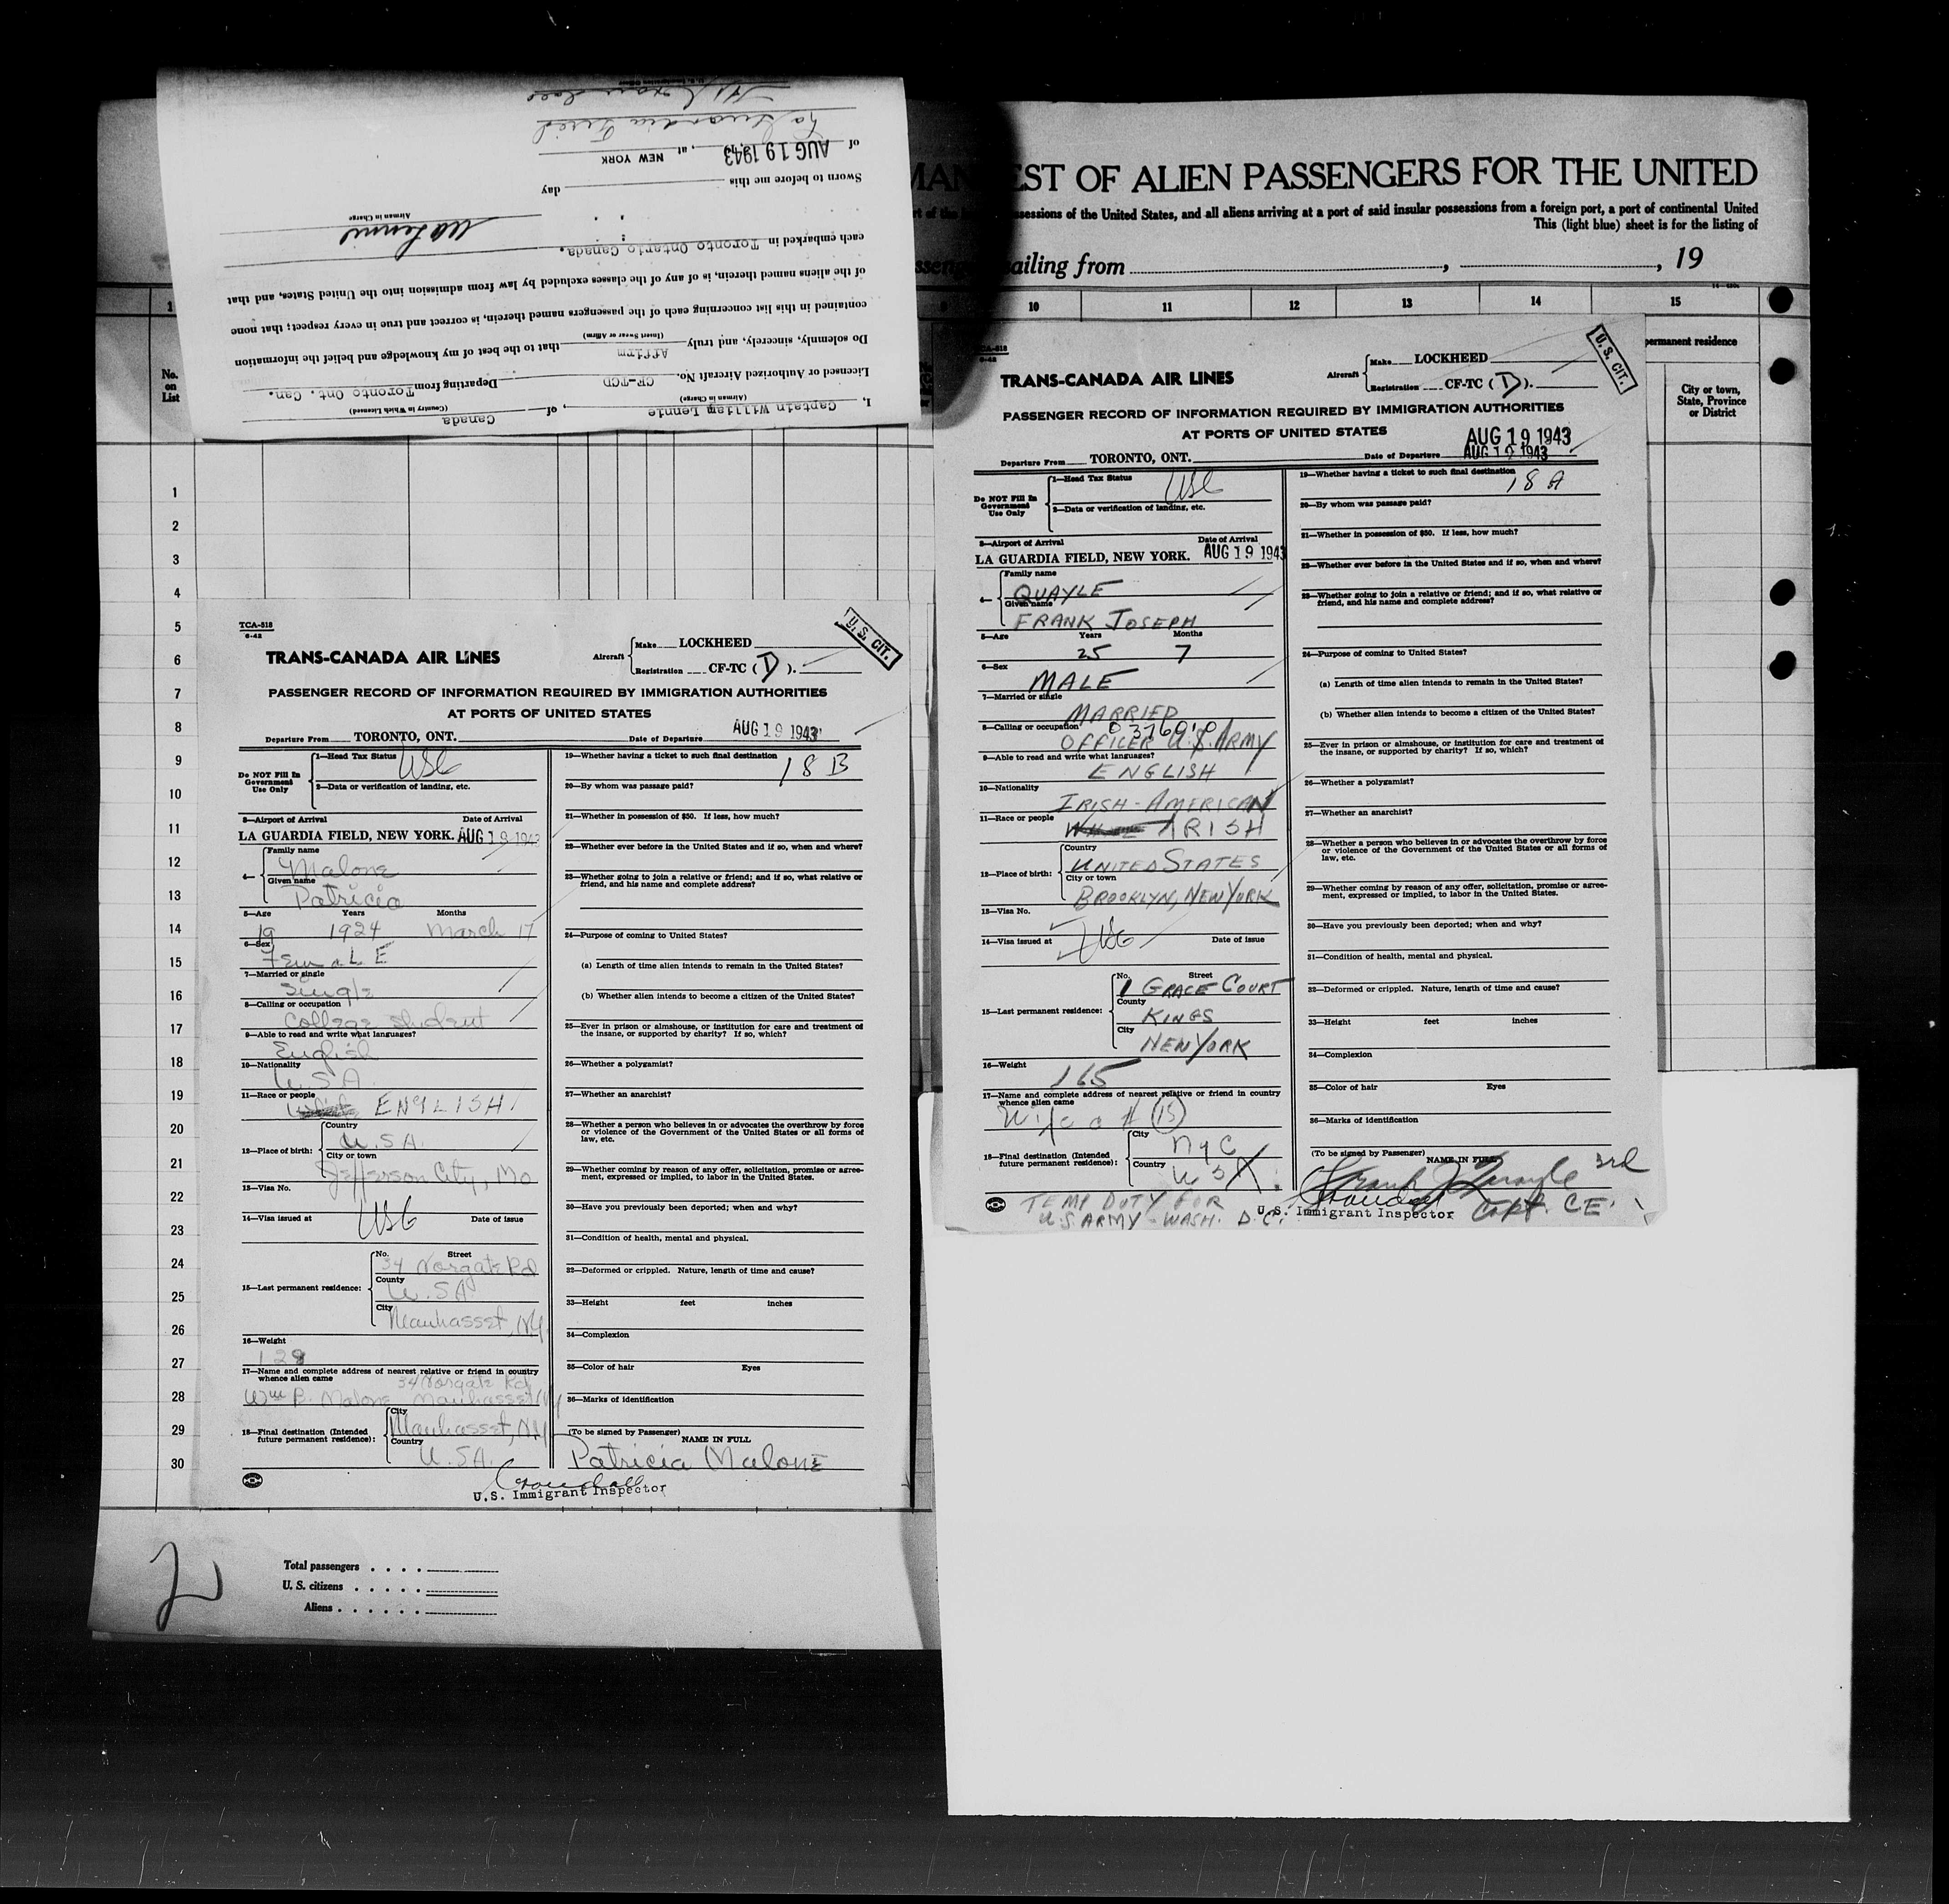 MANIFEST OF ALIEN PASSENGERS FOR THE UNITED
sessions of the United States, and all aliens arriving at a port of said insular possessions from a foreign port, a port of continental United
This (light blue) sheet is for the listing of
ailing from , , 19
10 11 12 13 14 15
permanent residence
City or town, State, Province or District
No. on List
1
2
3
4
5
6
7
8
9
10
11
12
13
14
15
16
17
18
19
20
21
22
23
24
25
26
27
28
29
30
Total passengers
U. S. citizens
Aliens
2
I, Captain William Lennie, of Canada
(Airman in Charge) (Country in Which Licensed)
Licensed or Authorized Aircraft No. CF-TCD Departing from Toronto Ont. Can.
Do solemnly, sincerely, and truly Affirm that to the best of my knowledge and belief the information
(Insert Swear or Affirm)
contained in this list concerning each of the passengers named therein, is correct and true in every respect; that none
of the aliens named therein, is of any of the classes excluded by law from admission into the United States, and that
each embarked in Toronto Ontario Canada.
Airman in Charge
Sworn to before me this day
of AUG 19 1943, at NEW YORK
La Guardia Field
TCA-518
6-42
U. S. CIT.
TRANS-CANADA AIR LINES
Aircraft Make LOCKHEED
Registration CF-TC (D).
PASSENGER RECORD OF INFORMATION REQUIRED BY IMMIGRATION AUTHORITIES
AT PORTS OF UNITED STATES
Departure From TORONTO, ONT. Date of Departure AUG 19 1943
Do NOT Fill In Government Use Only
1—Head Tax Status USC
2—Data or verification of landing, etc.
3—Airport of Arrival Date of Arrival
LA GUARDIA FIELD, NEW YORK. AUG 19 1943
4— Family name Malone
Given name Patricia
5—Age Years Months
19 1924 March 17
6—Sex FemaLE
7—Married or single Single
8—Calling or occupation College student
9—Able to read and write what languages? English
10—Nationality U.S.A.
11—Race or people ENGLISH
12—Place of birth: Country U.S.A.
City or town Jefferson City, Mo
13—Visa No.
14—Visa issued at USC Date of issue
15—Last permanent residence: No. Street 34 Norgate Rd
County U.S.A
City Manhasset, NY
16—Weight 128
17—Name and complete address of nearest relative or friend in country whence alien came
34 Norgate Rd
Wm P. Malone Manhasset NY
18—Final destination (Intended future permanent residence): City Manhasset, NY
Country U.S.A.
19—Whether having a ticket to such final destination 18 B
20—By whom was passage paid?
21—Whether in possession of $50. If less, how much?
22—Whether ever before in the United States and if so, when and where?
23—Whether going to join a relative or friend; and if so, what relative or friend, and his name and complete address?
24—Purpose of coming to United States?
(a) Length of time alien intends to remain in the United States?
(b) Whether alien intends to become a citizen of the United States?
25—Ever in prison or almshouse, or institution for care and treatment of the insane, or supported by charity? If so, which?
26—Whether a polygamist?
27—Whether an anarchist?
28—Whether a person who believes in or advocates the overthrow by force or violence of the Government of the United States or all forms of law, etc.
29—Whether coming by reason of any offer, solicitation, promise or agreement, expressed or implied, to labor in the United States.
30—Have you previously been deported; when and why?
31—Condition of health, mental and physical.
32—Deformed or crippled. Nature, length of time and cause?
33—Height feet inches
34—Complexion
35—Color of hair Eyes
36—Marks of identification
(To be signed by Passenger) NAME IN FULL
Patricia Malone
U.S. Immigrant Inspector
CA-518
6-42
U. S. CIT.
TRANS-CANADA AIR LINES
Aircraft Make LOCKHEED
Registration CF-TC (D).
PASSENGER RECORD OF INFORMATION REQUIRED BY IMMIGRATION AUTHORITIES
AT PORTS OF UNITED STATES
AUG 19 1943
Departure From TORONTO, ONT. Date of Departure AUG 19 1943
Do NOT Fill In Government Use Only
1—Head Tax Status USC
2—Data or verification of landing, etc.
3—Airport of Arrival Date of Arrival
LA GUARDIA FIELD, NEW YORK. AUG 19 1943
4— Family name QUAYLE
Given name FRANK JOSEPH
5—Age Years Months
25 7
6—Sex MALE
7—Married or single MARRIED
8—Calling or occupation OFFICER U.S. ARMY
9—Able to read and write what languages? ENGLISH
10—Nationality IRISH-AMERICAN
11—Race or people IRISH
12—Place of birth: Country UNITED STATES
City or town BROOKLYN, NEW YORK
13—Visa No.
14—Visa issued at Date of issue
15—Last permanent residence: No. Street 1 GRACE COURT
County KINGS
City NEW YORK
16—Weight 165
17—Name and complete address of nearest relative or friend in country whence alien came
Wife at (15)
18—Final destination (Intended future permanent residence): City NYC
Country USA
TEMP DUTY FOR
U.S ARMY - WASH. D.C.
19—Whether having a ticket to such final destination 18 A
20—By whom was passage paid?
21—Whether in possession of $50. If less, how much?
22—Whether ever before in the United States and if so, when and where?
23—Whether going to join a relative or friend; and if so, what relative or friend, and his name and complete address?
24—Purpose of coming to United States?
(a) Length of time alien intends to remain in the United States?
(b) Whether alien intends to become a citizen of the United States?
25—Ever in prison or almshouse, or institution for care and treatment of the insane, or supported by charity? If so, which?
26—Whether a polygamist?
27—Whether an anarchist?
28—Whether a person who believes in or advocates the overthrow by force or violence of the Government of the United States or all forms of law, etc.
29—Whether coming by reason of any offer, solicitation, promise or agreement, expressed or implied, to labor in the United States.
30—Have you previously been deported; when and why?
31—Condition of health, mental and physical.
32—Deformed or crippled. Nature, length of time and cause?
33—Height feet inches
34—Complexion
35—Color of hair Eyes
36—Marks of identification
(To be signed by Passenger) NAME IN FULL
Frank J Quayle 3rd
Capt. C.E.
U.S. Immigrant Inspector